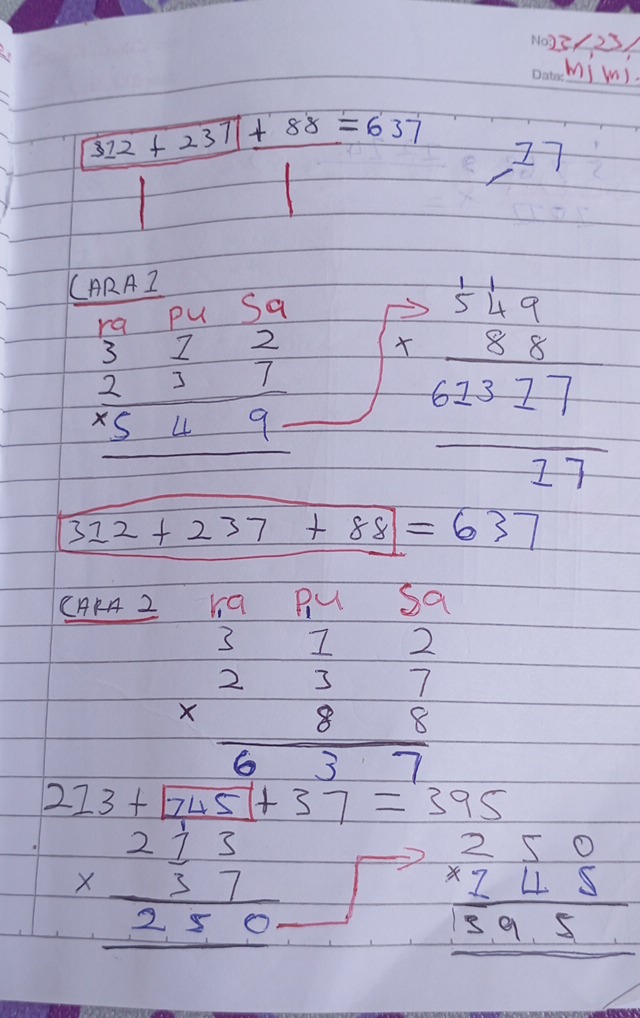 No: 23/23/
Date: Mimi
312 + 237 + 88 = 637
17
CARA 1
ra pu Sa
3 1 2
2 3 7
× 5 4 9
1 1
5 4 9
× 8 8
61317
17
312 + 237 + 88 = 637
CARA 2 ra pu Sa
3 1 2
2 3 7
× 8 8
6 3 7
213 + 145 + 37 = 395
1
2 1 3
× 3 7
2 5 0
2 5 0
× 1 4 5
3 9 5